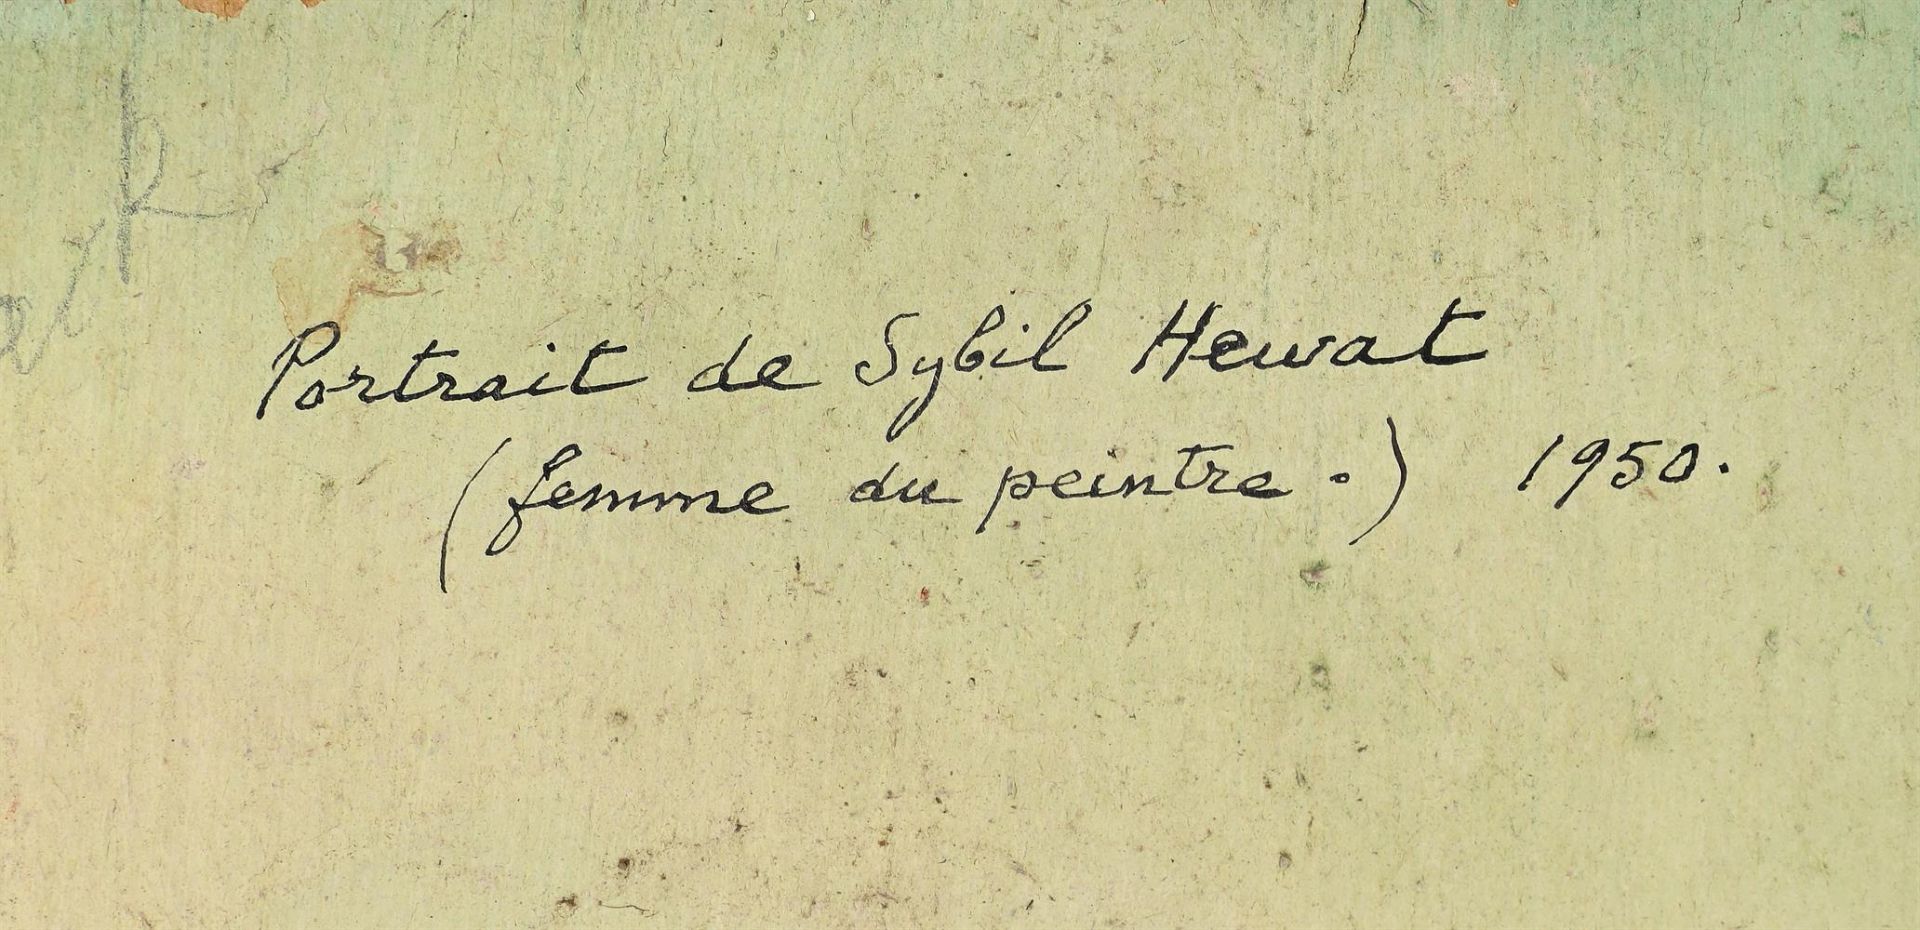 Portrait de Sybil Hewat
(femme du peintre.) 1950.